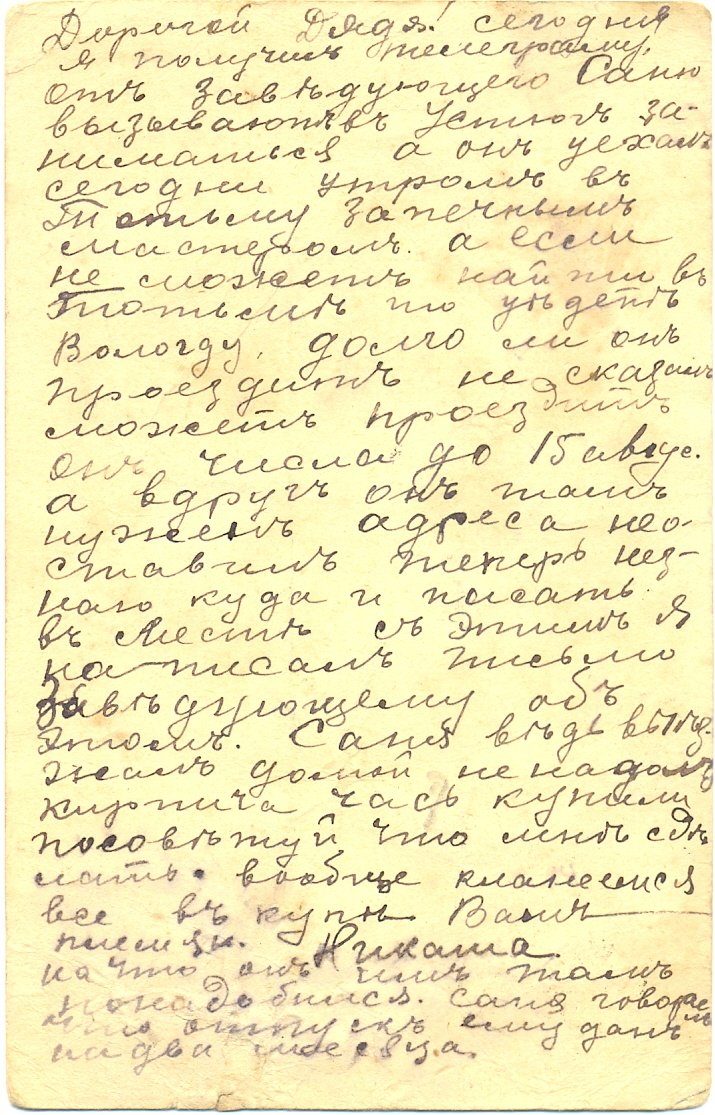 Дорогой Дядя! сегодня
я получилъ телеграму
отъ завѣдующего Саню
вызываютъ въ Устюгъ за-
ниматься а онъ уехалъ
сегодни утромъ въ
Тотьму за печнымъ
мастеромъ. а если
не можетъ найти въ
Тотьмѣ то уѣдетъ
Вологду, долго ли онъ
проездитъ не сказалъ
можетъ проездитъ
онъ числа до 15 авгус.
а вдругъ онъ тамъ
нуженъ адреса нео-
ставилъ теперь нез-
наю куда и писать
въ Местѣ съ этимъ я
написалъ письмо
Завѣдующему объ
этомъ. Саня вѣдь выѣз-
жалъ домой ненадолъ
кирпича часъ купили
посовѣтуй что мнѣ сдѣ
лать. вообще кланяемся
все въ купѣ Вамъ
племян. Никаша
на что онъ имъ тамъ
понадобился. Саня говорилъ
что отпускъ ему данъ
на два месяца.